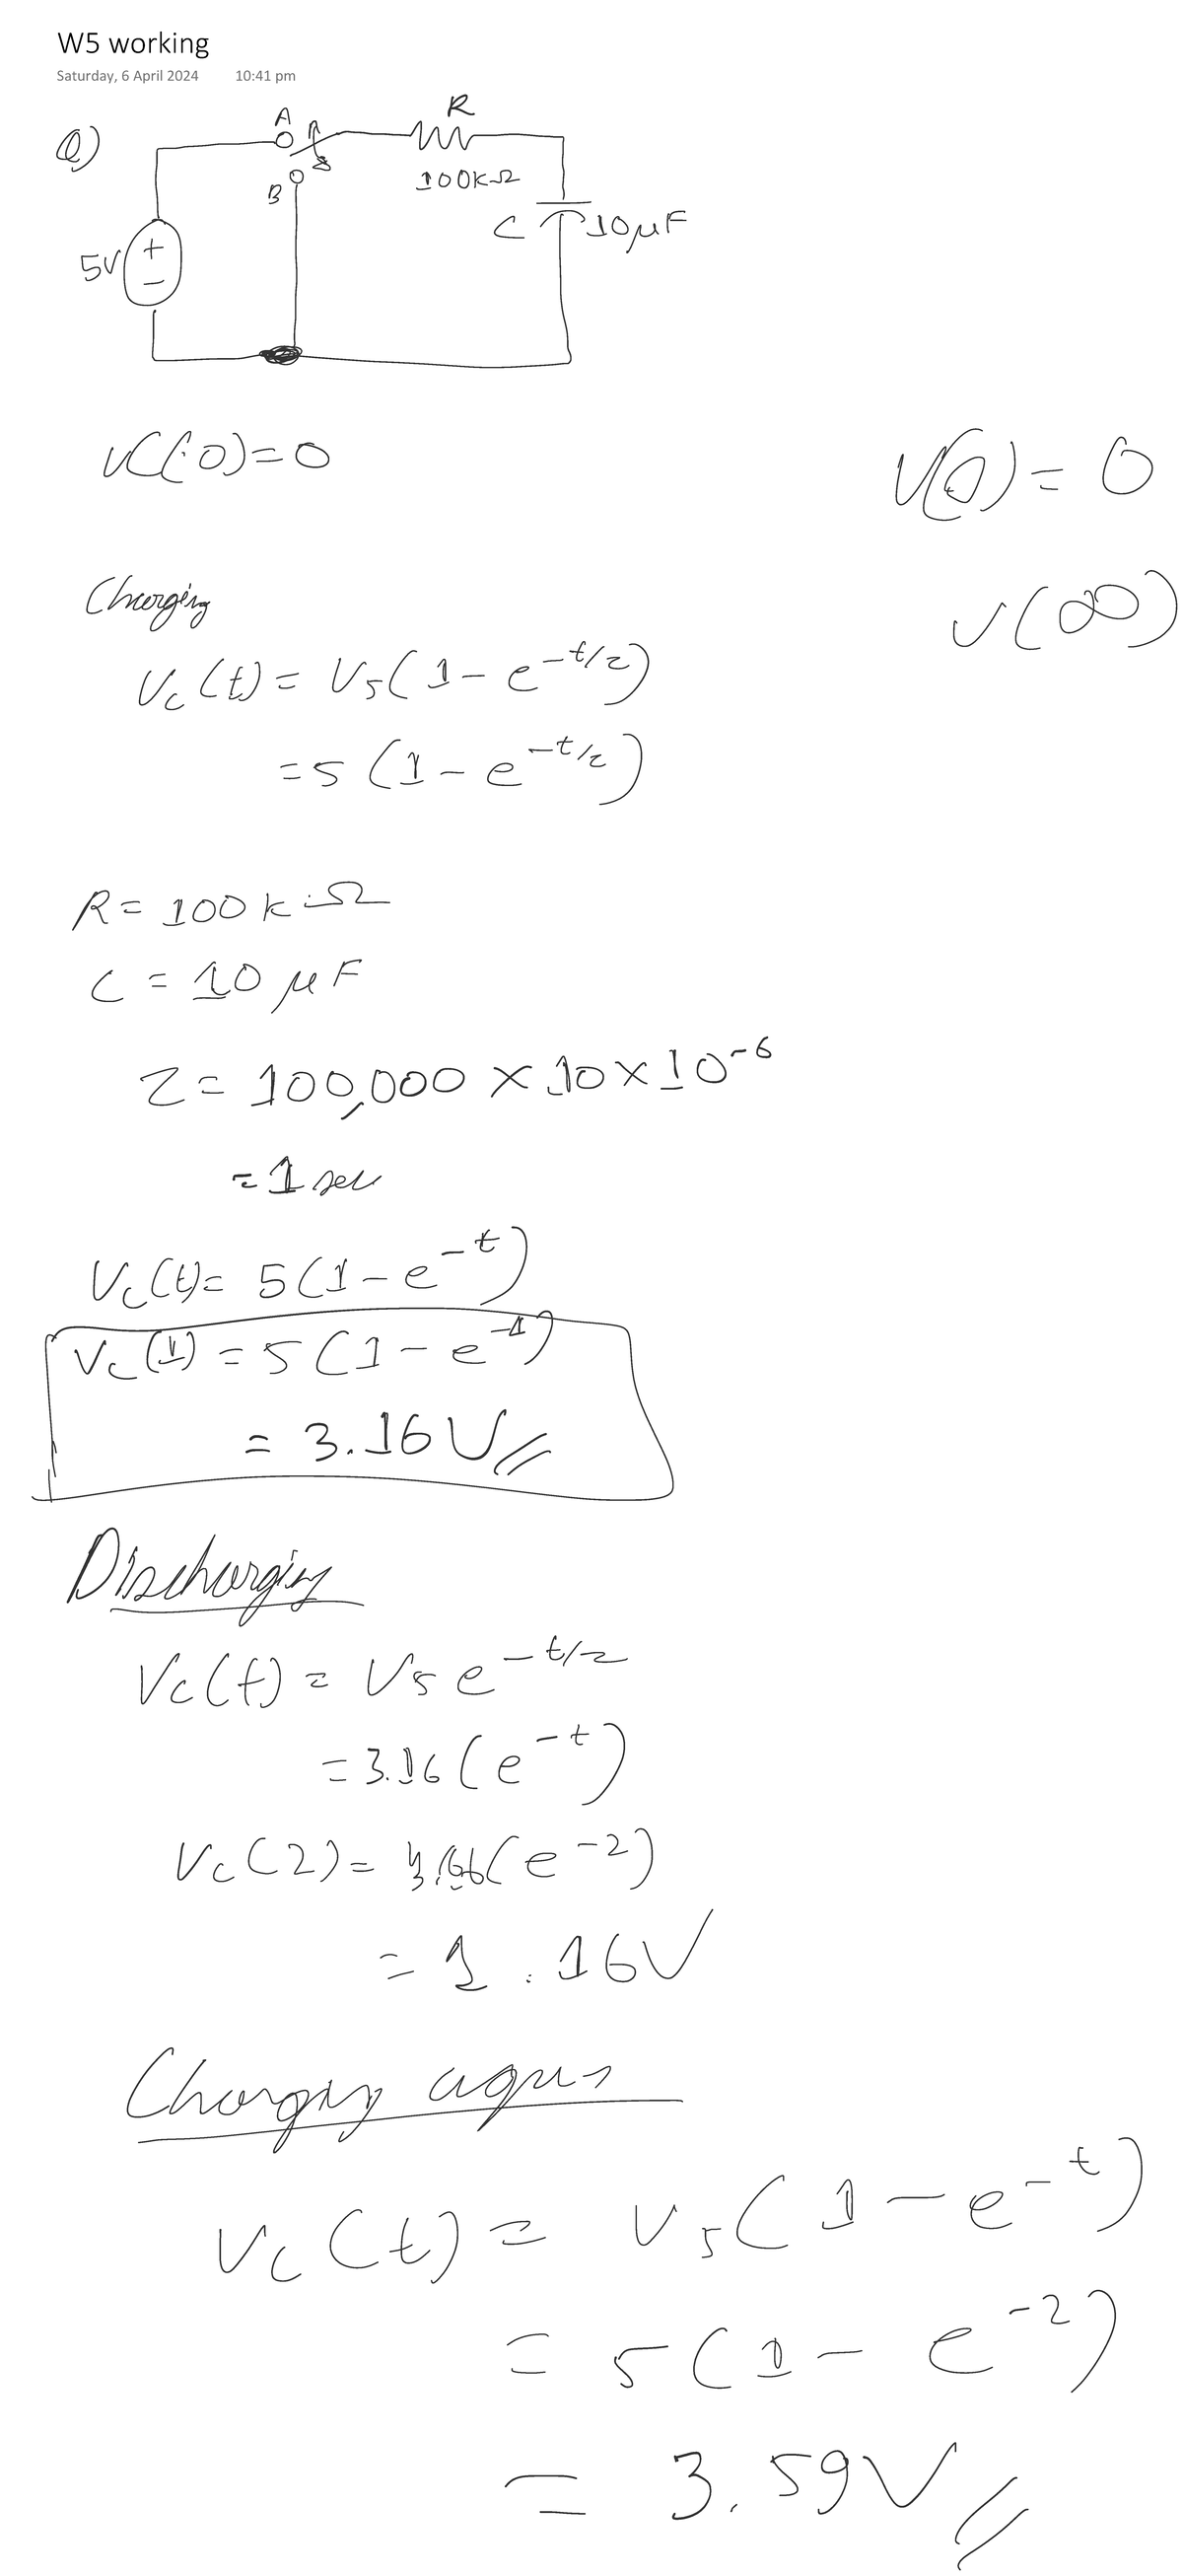 W5 working
Saturday, 6 April 2024 10:41 pm
Q)
A
R
100KΩ
B
5V
+
−
C
10μF
vC(0)=0
V(0) = 0
v(∞)
Charging
Vc(t) = Vs(1-e^-t/z)
=5(1-e^-t/z)
R = 100kΩ
C = 10 μF
Z = 100,000 × 10×10^-6
= 1 sec
Vc(t)= 5(1-e^-t)
Vc(1) = 5(1-e^-1)
= 3.16V
Discharging
Vc(t) = Vs e^-t/z
= 3.16(e^-t)
Vc(2) = (e^-2)
= 1.16V
Charging
Vc(t) = Vs(1-e^-t)
= 5(1-e^-2)
= 3.59V